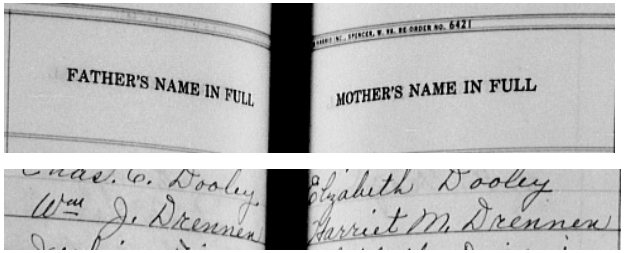 HARRIS INC., SPENCER, W. VA. RE-ORDER NO. 6421
FATHER'S NAME IN FULL
MOTHER'S NAME IN FULL
Chas. C. Dooley.
Elizabeth Dooley
Wm J. Drennen
Harriet M. Drennen